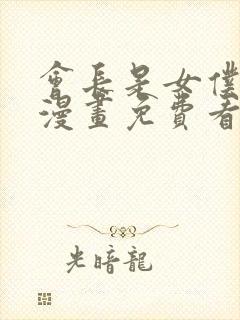 會長是女僕
漫畫免費看
光暗龍